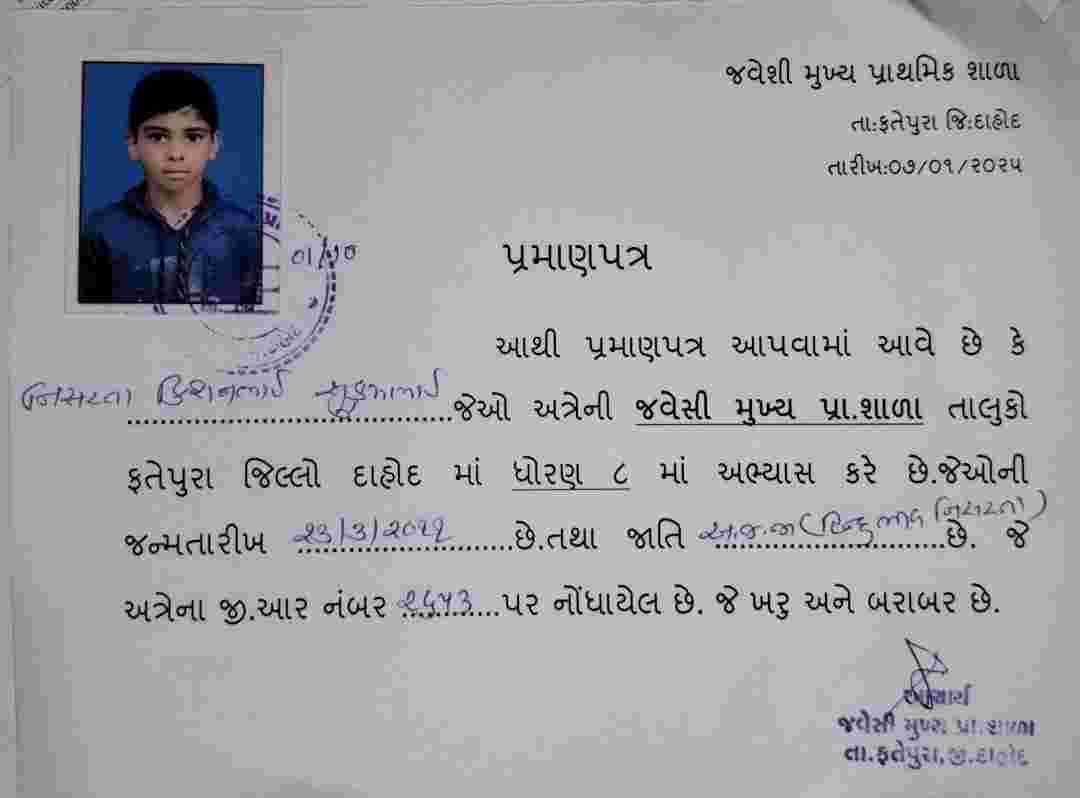 જવેશી મુખ્ય પ્રાથમિક શાળા
તા:ફતેપુરા જિ:દાહોદ
તારીખ:૦૭/૦૧/૨૦૨૫
પ્રમાણપત્ર
આથી પ્રમાણપત્ર આપવામાં આવે છે કે
નિસરતા કિશનભાઈ ..............................જેઓ અત્રેની જવેસી મુખ્ય પ્રા.શાળા તાલુકો
ફતેપુરા જિલ્લો દાહોદ માં ધોરણ ૮ માં અભ્યાસ કરે છે.જેઓની
જન્મતારીખ ૨૩/૩/૨૦૧૧ છે.તથા જાતિ અ.જ.જા (હિન્દુ ભીલ નિસરતા) છે. જે
અત્રેના જી.આર નંબર ૨૬૫૩....પર નોંધાયેલ છે. જે ખરુ અને બરાબર છે.
આચાર્ય
જવેસી મુખ્ય પ્રા.શાળા
તા.ફતેપુરા,જી.દાહોદ